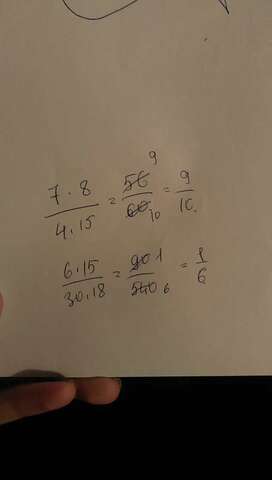 7 · 8 / 4 . 15 = 56 / 60 9 / 10 = 9 / 10.
6 . 15 / 30 . 18 = 90 / 540 1 / 6 = 1 / 6